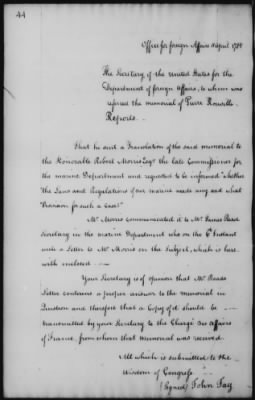 44
Office for foreign Affairs April 1788
The Secretary of the United States for the
Department of foreign Affairs, to whom was
referred the memorial of Pierre
Reports.
That he sent a Translation of the said memorial to
the Honorable Robert Morris Esqr the late Commissioner for
the marine Department and requested to be informed "whether
the Laws and Regulations of our marine made any and what
Provision for such a Case?"
Mr Morris communicated it to Mr James Read
Secretary in the marine Department who on the 6th Instant
wrote a Letter to Mr Morris on the Subject, which is here
with enclosed
Your Secretary is of opinion that Mr Reads
Letter contains a proper answer to the memorial in
Question and therefore that a Copy of it should be
transmitted by your Secretary to the Chargé des Affaires
of France, from whom that memorial was received.
All which is submitted to the
Wisdom of Congress
(Signed) John Jay